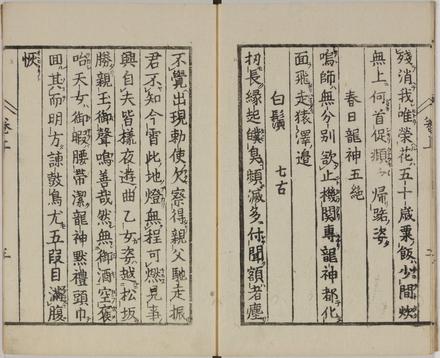 殘消我唯榮花五十歲粟飯少間炊
無上何首促頻歸路姿
春日龍神五絶
嗚師無分別欲止機關專龍神都化
面飛走猿澤邊
白鬚 七古
切長緣起皆滅多付聞額者塵
不覺出現勅使欠察得親父馳走振
君不知今宵此地燈無程可燃見事
興自夫皆樣夜遊曲乙女姿越松坂
勝親王御聲鳴善哉然無御酒空寂
咍天女御暇腰帶潔龍神黙禮頭巾
回其而明方諫鼓鳥尤五段目滿腹